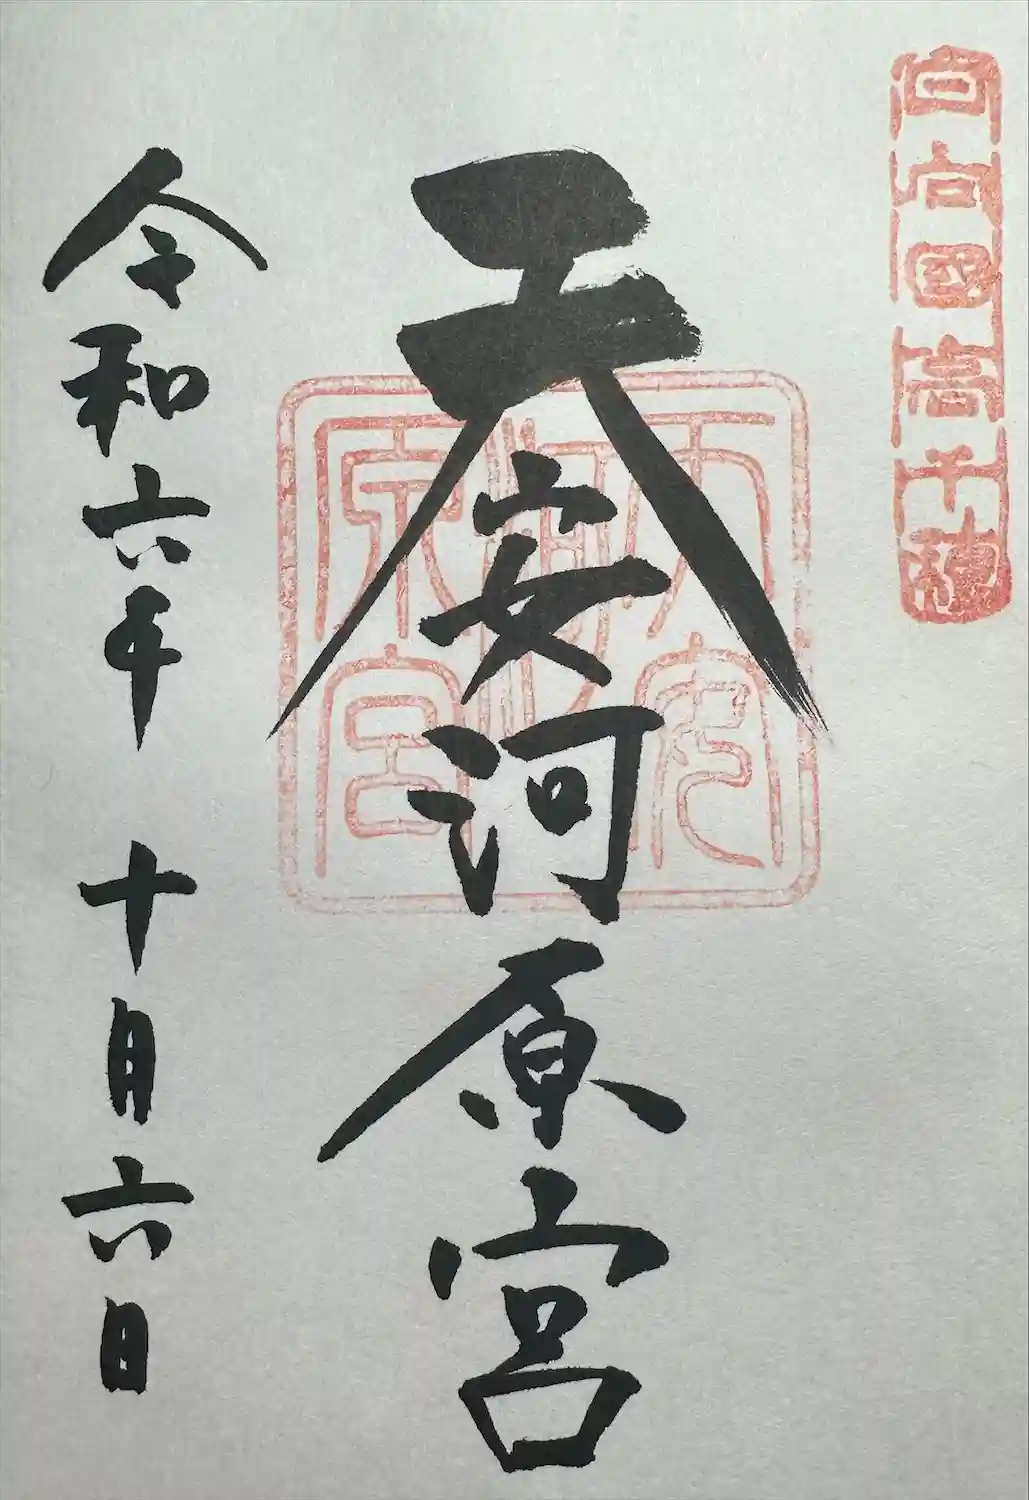 日向国高千穂
天安河原宮
天安河原宮
令和六年 十月六日